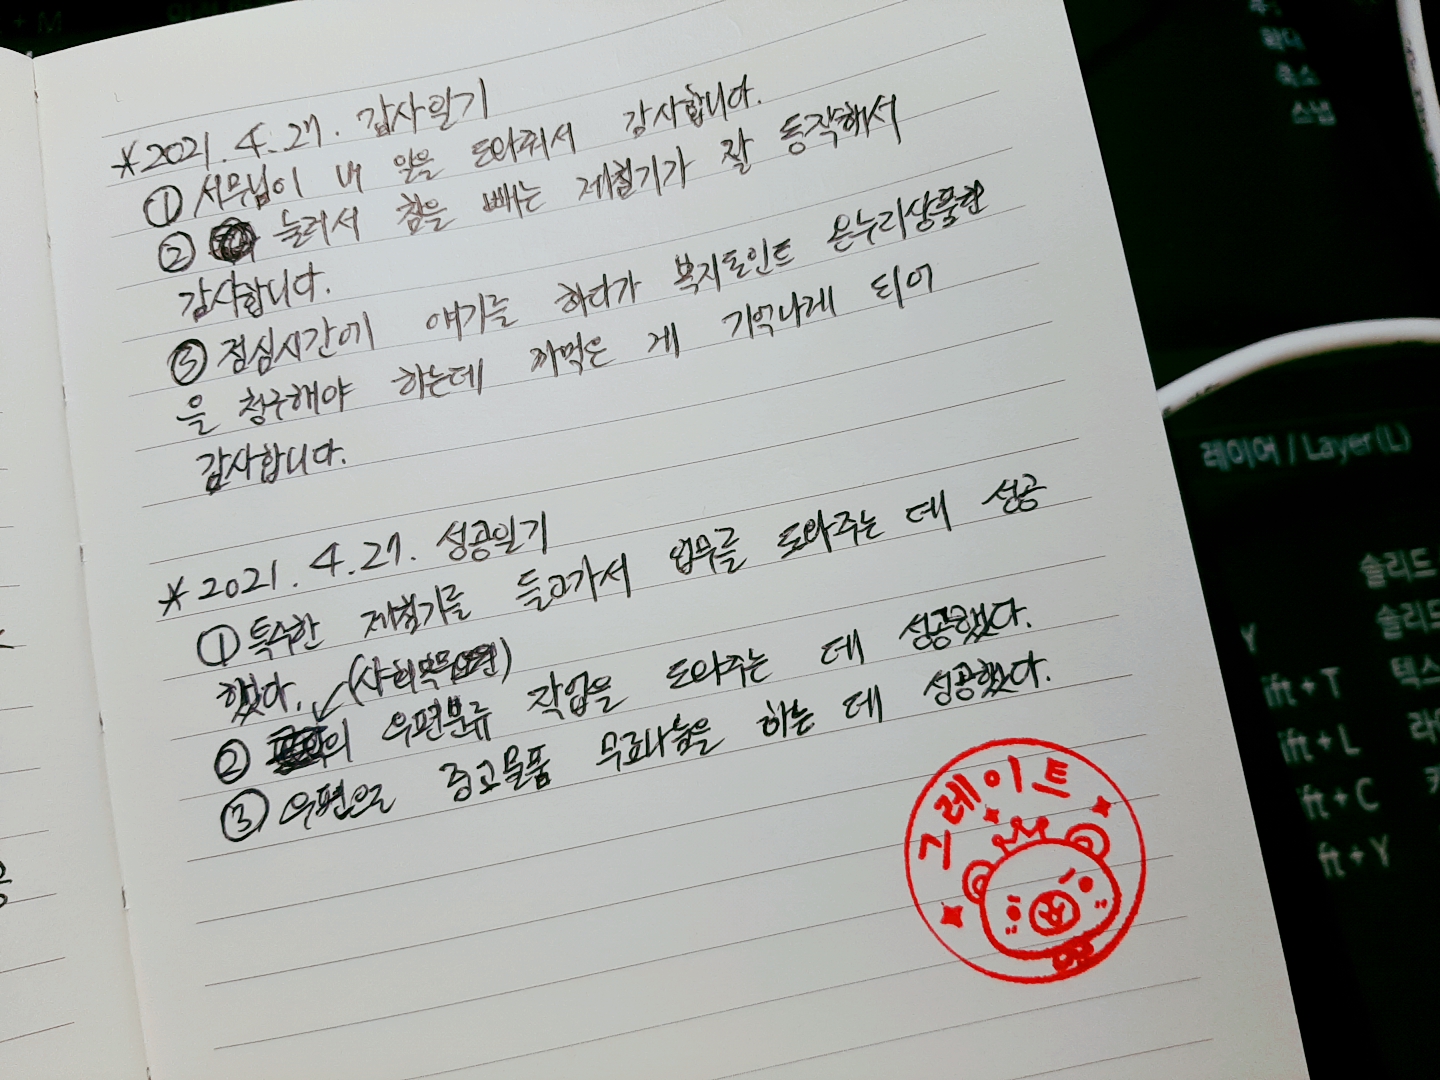 *2021.4.27. 감사일기
① 서무님이 내 일을 도와줘서 감사합니다.
② 눌러서 침을 빼는 제침기가 잘 동작해서
감사합니다.
③ 점심시간에 얘기를 하다가 복지포인트 온누리상품권
을 청구해야 하는데 까먹은 게 기억나게 되어
감사합니다.
*2021.4.27. 성공일기
① 특수한 제침기를 들고가서 업무를 도와주는 데 성공
했다. (사회복무요원)
② 의 우편분류 작업을 도와주는 데 성공했다.
③ 우편으로 중고물품 무료나눔을 하는 데 성공했다.
그레이트
확대
축소
스냅
레이어 / Layer(L)
솔리드
솔리드
Y
ift + T 텍스
ift + L 라
ift + C
ft + Y
+ M